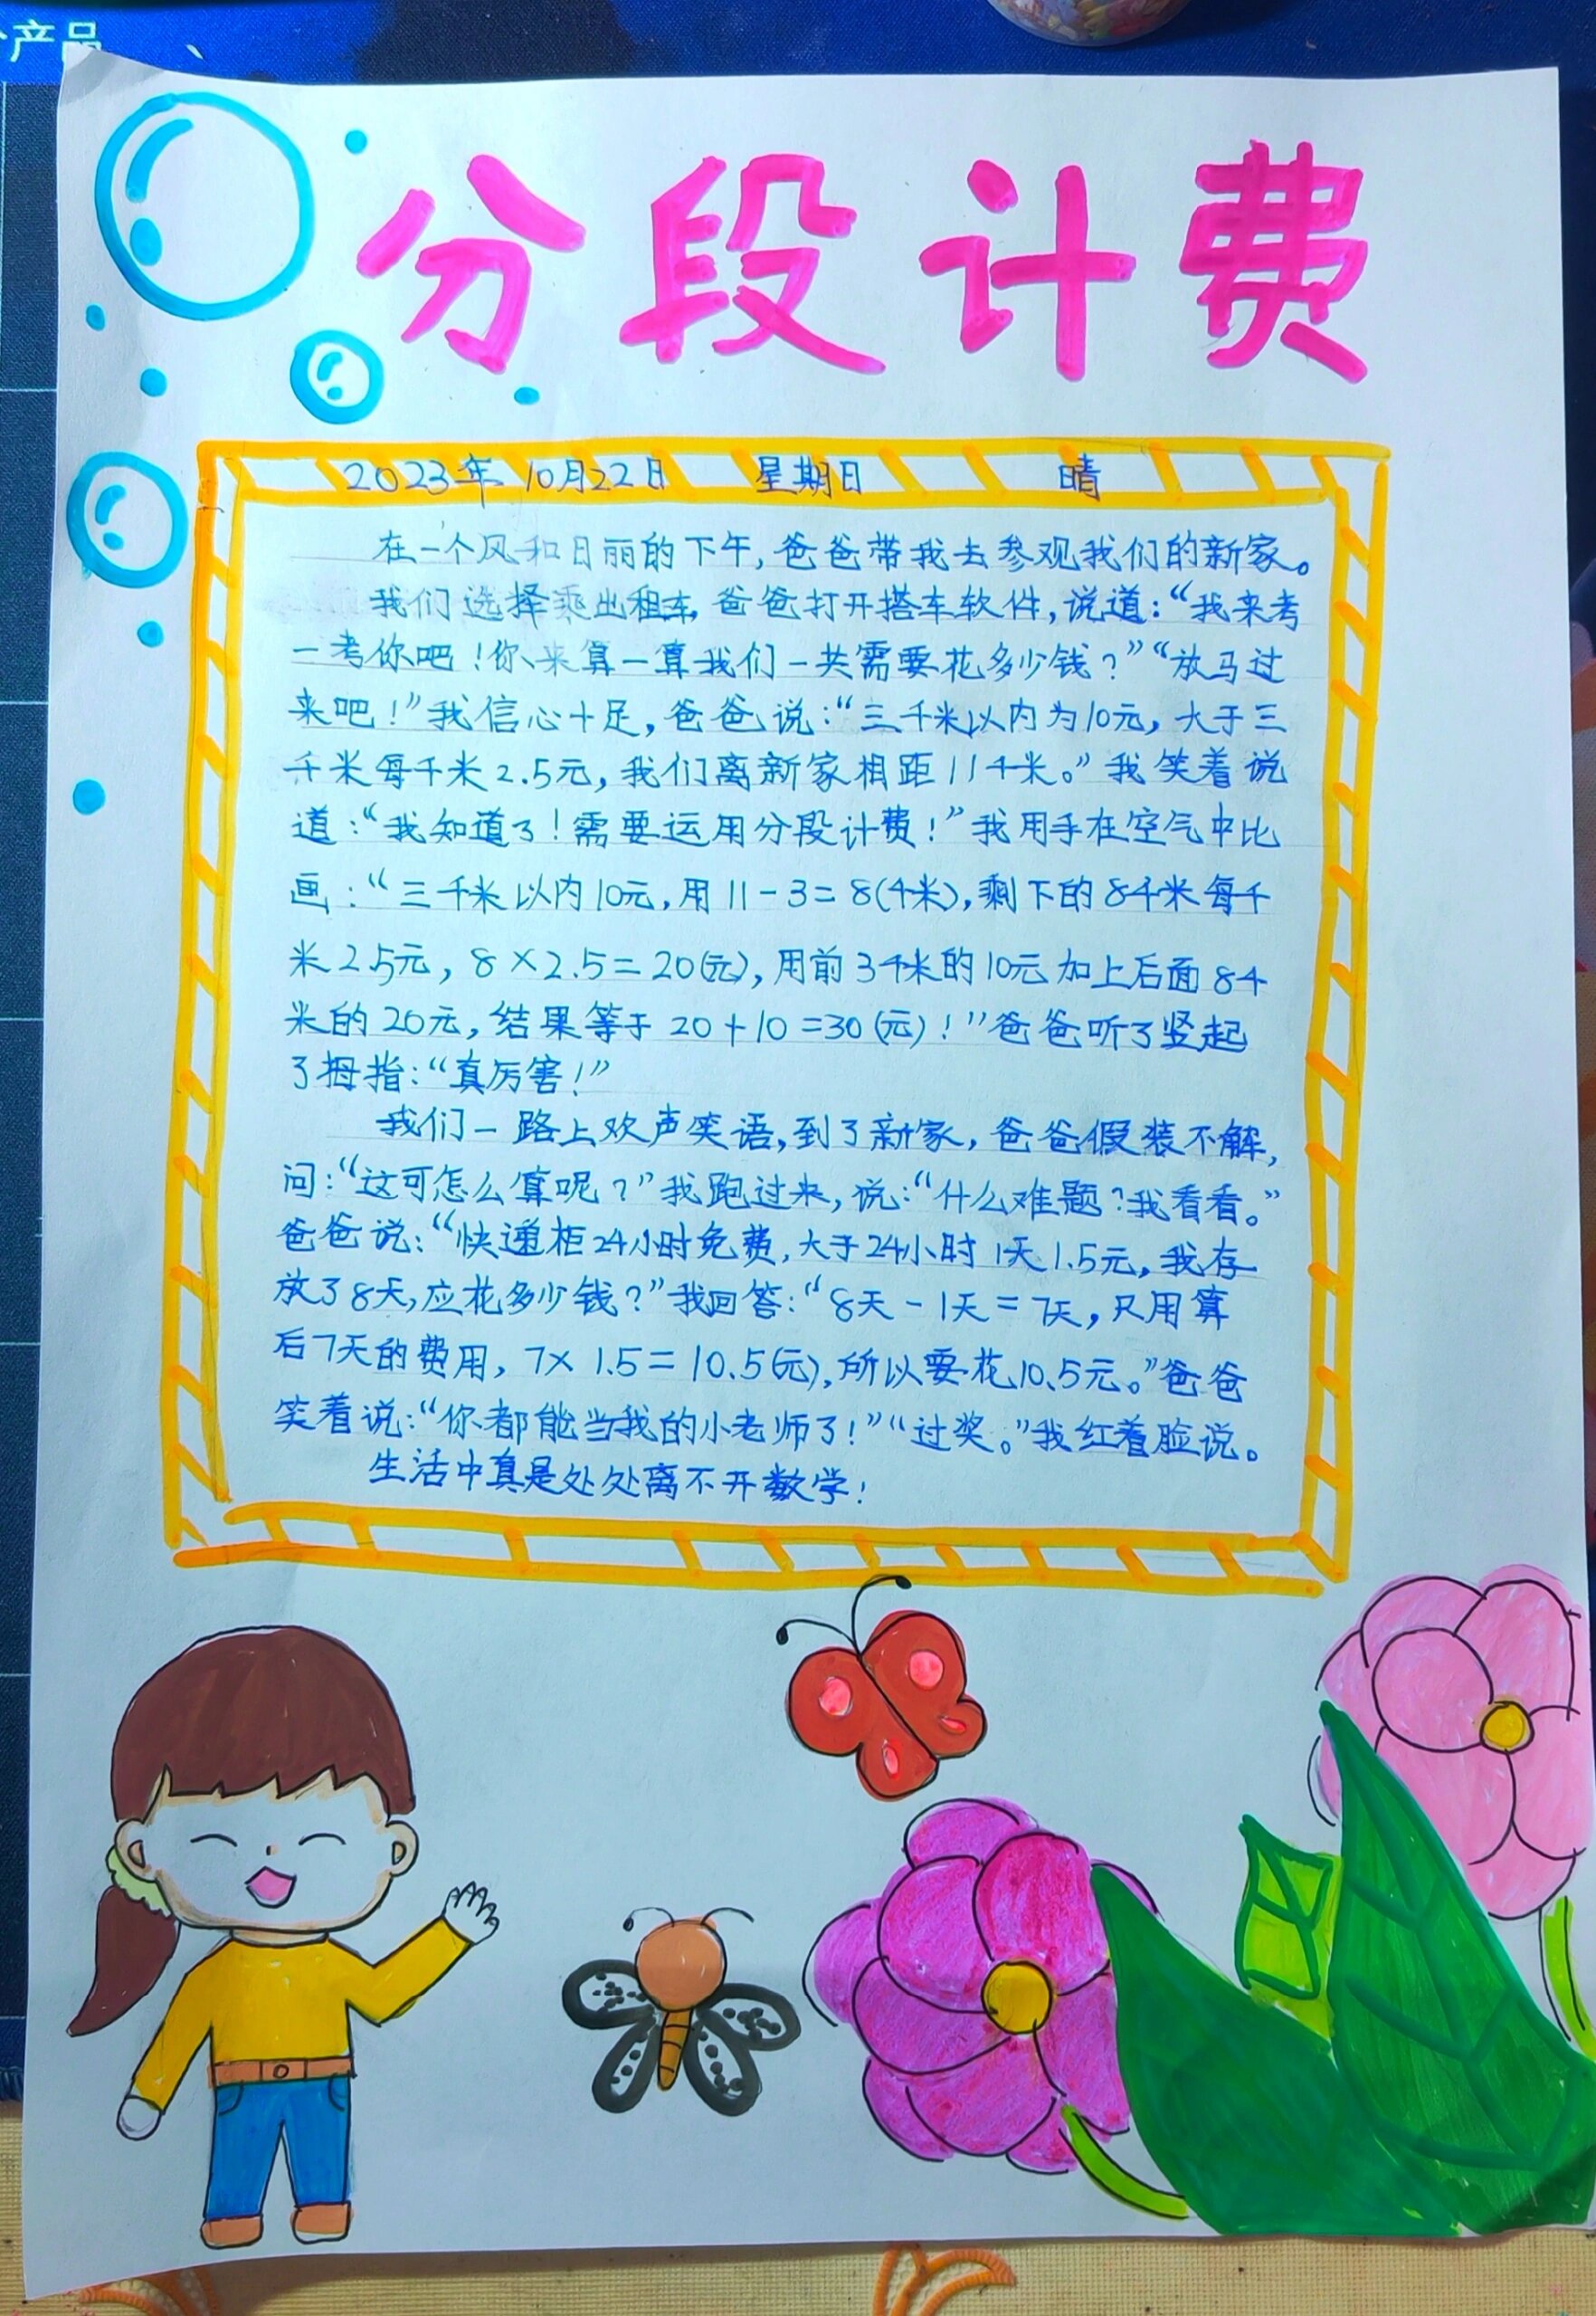 个产品
分段计费
2023年 10月22日 星期日 晴
在一个风和日丽的下午,爸爸带我去参观我们的新家。
我们选择乘出租车,爸爸打开搭车软件,说道:“我来考
一考你吧!你来算一算我们一共需要花多少钱?”“放马过
来吧!”我信心十足,爸爸说:“三千米以内为10元,大于三
千米每千米2.5元,我们离新家相距11千米。”我笑着说
道:“我知道了!需要运用分段计费!”我用手在空气中比
画:“三千米以内10元,用11-3=8(千米),剩下的8千米每千
米2.5元,8×2.5=20(元),用前3千米的10元加上后面8千
米的20元,结果等于20+10=30(元)!”爸爸听了竖起
了拇指:“真厉害!”
我们一路上欢声笑语,到了新家,爸爸假装不解,
问:“这可怎么算呢?”我跑过来,说:“什么难题?我看看。”
爸爸说:“快递柜24小时免费,大于24小时1天1.5元,我存
放了8天,应花多少钱?”我回答:“8天-1天=7天,只用算
后7天的费用,7×1.5=10.5(元),所以要花10.5元。”爸爸
笑着说:“你都能当我的小老师了!”“过奖。”我红着脸说。
生活中真是处处离不开数学!